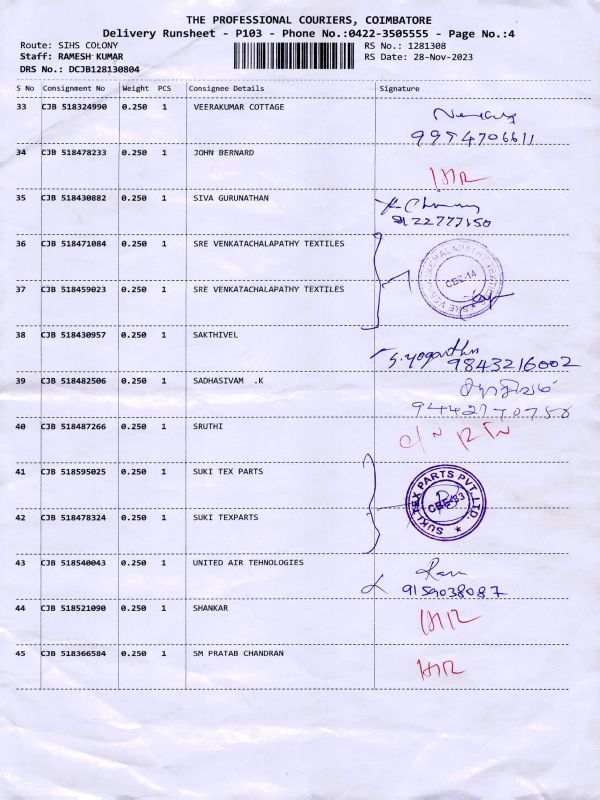 THE PROFESSIONAL COURIERS, COIMBATORE
Delivery Runsheet - P103 - Phone No.:0422-3505555 - Page No.:4
Route: SIHS COLONY RS No.: 1281308
Staff: RAMESH KUMAR RS Date: 28-Nov-2023
DRS No.: DCJB128130804
S No Consignment No Weight PCS Consignee Details Signature
33 CJB 518324990 0.250 1 VEERAKUMAR COTTAGE
9954706611
34 CJB 518478233 0.250 1 JOHN BERNARD
35 CJB 518430882 0.250 1 SIVA GURUNATHAN
36 CJB 518471084 0.250 1 SRE VENKATACHALAPATHY TEXTILES
CBE-14
37 CJB 518459023 0.250 1 SRE VENKATACHALAPATHY TEXTILES
38 CJB 518430957 0.250 1 SAKTHIVEL
9843216002
39 CJB 518482506 0.250 1 SADHASIVAM .K
40 CJB 518487266 0.250 1 SRUTHI
41 CJB 518595025 0.250 1 SUKI TEX PARTS
SUKI TEX PARTS PVT. LTD.
42 CJB 518478324 0.250 1 SUKI TEXPARTS
43 CJB 518540043 0.250 1 UNITED AIR TEHNOLOGIES
9159038087
44 CJB 518521090 0.250 1 SHANKAR
45 CJB 518366584 0.250 1 SM PRATAB CHANDRAN